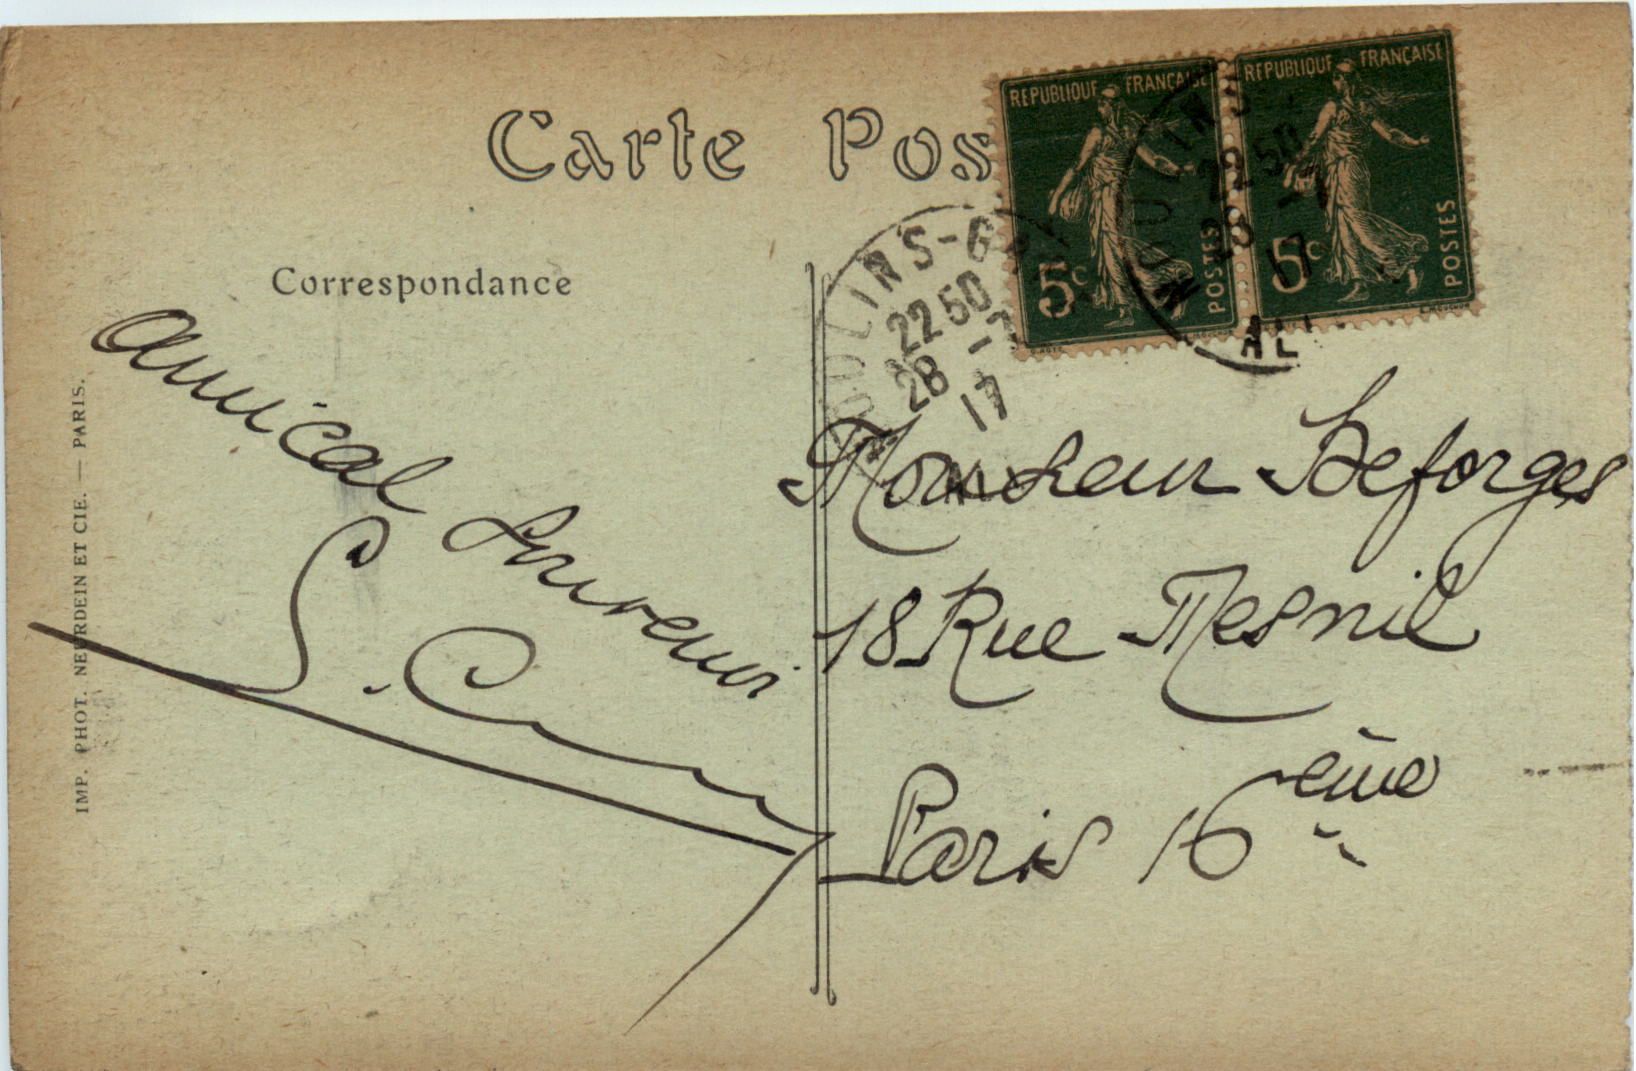 Carte Pos
REPUBLIQUE FRANÇAISE
5c
POSTES
REPUBLIQUE FRANÇAISE
5c
POSTES
MOULINS-G
22 50
28 -7
17
MOULINS
22 50
28 -7
17
AL
Correspondance
amical
souvenir
S.
Monsieur Deforges
18 Rue Mesnil
Paris 16ème
IMP. PHOT. NEURDEIN ET CIE. — PARIS.